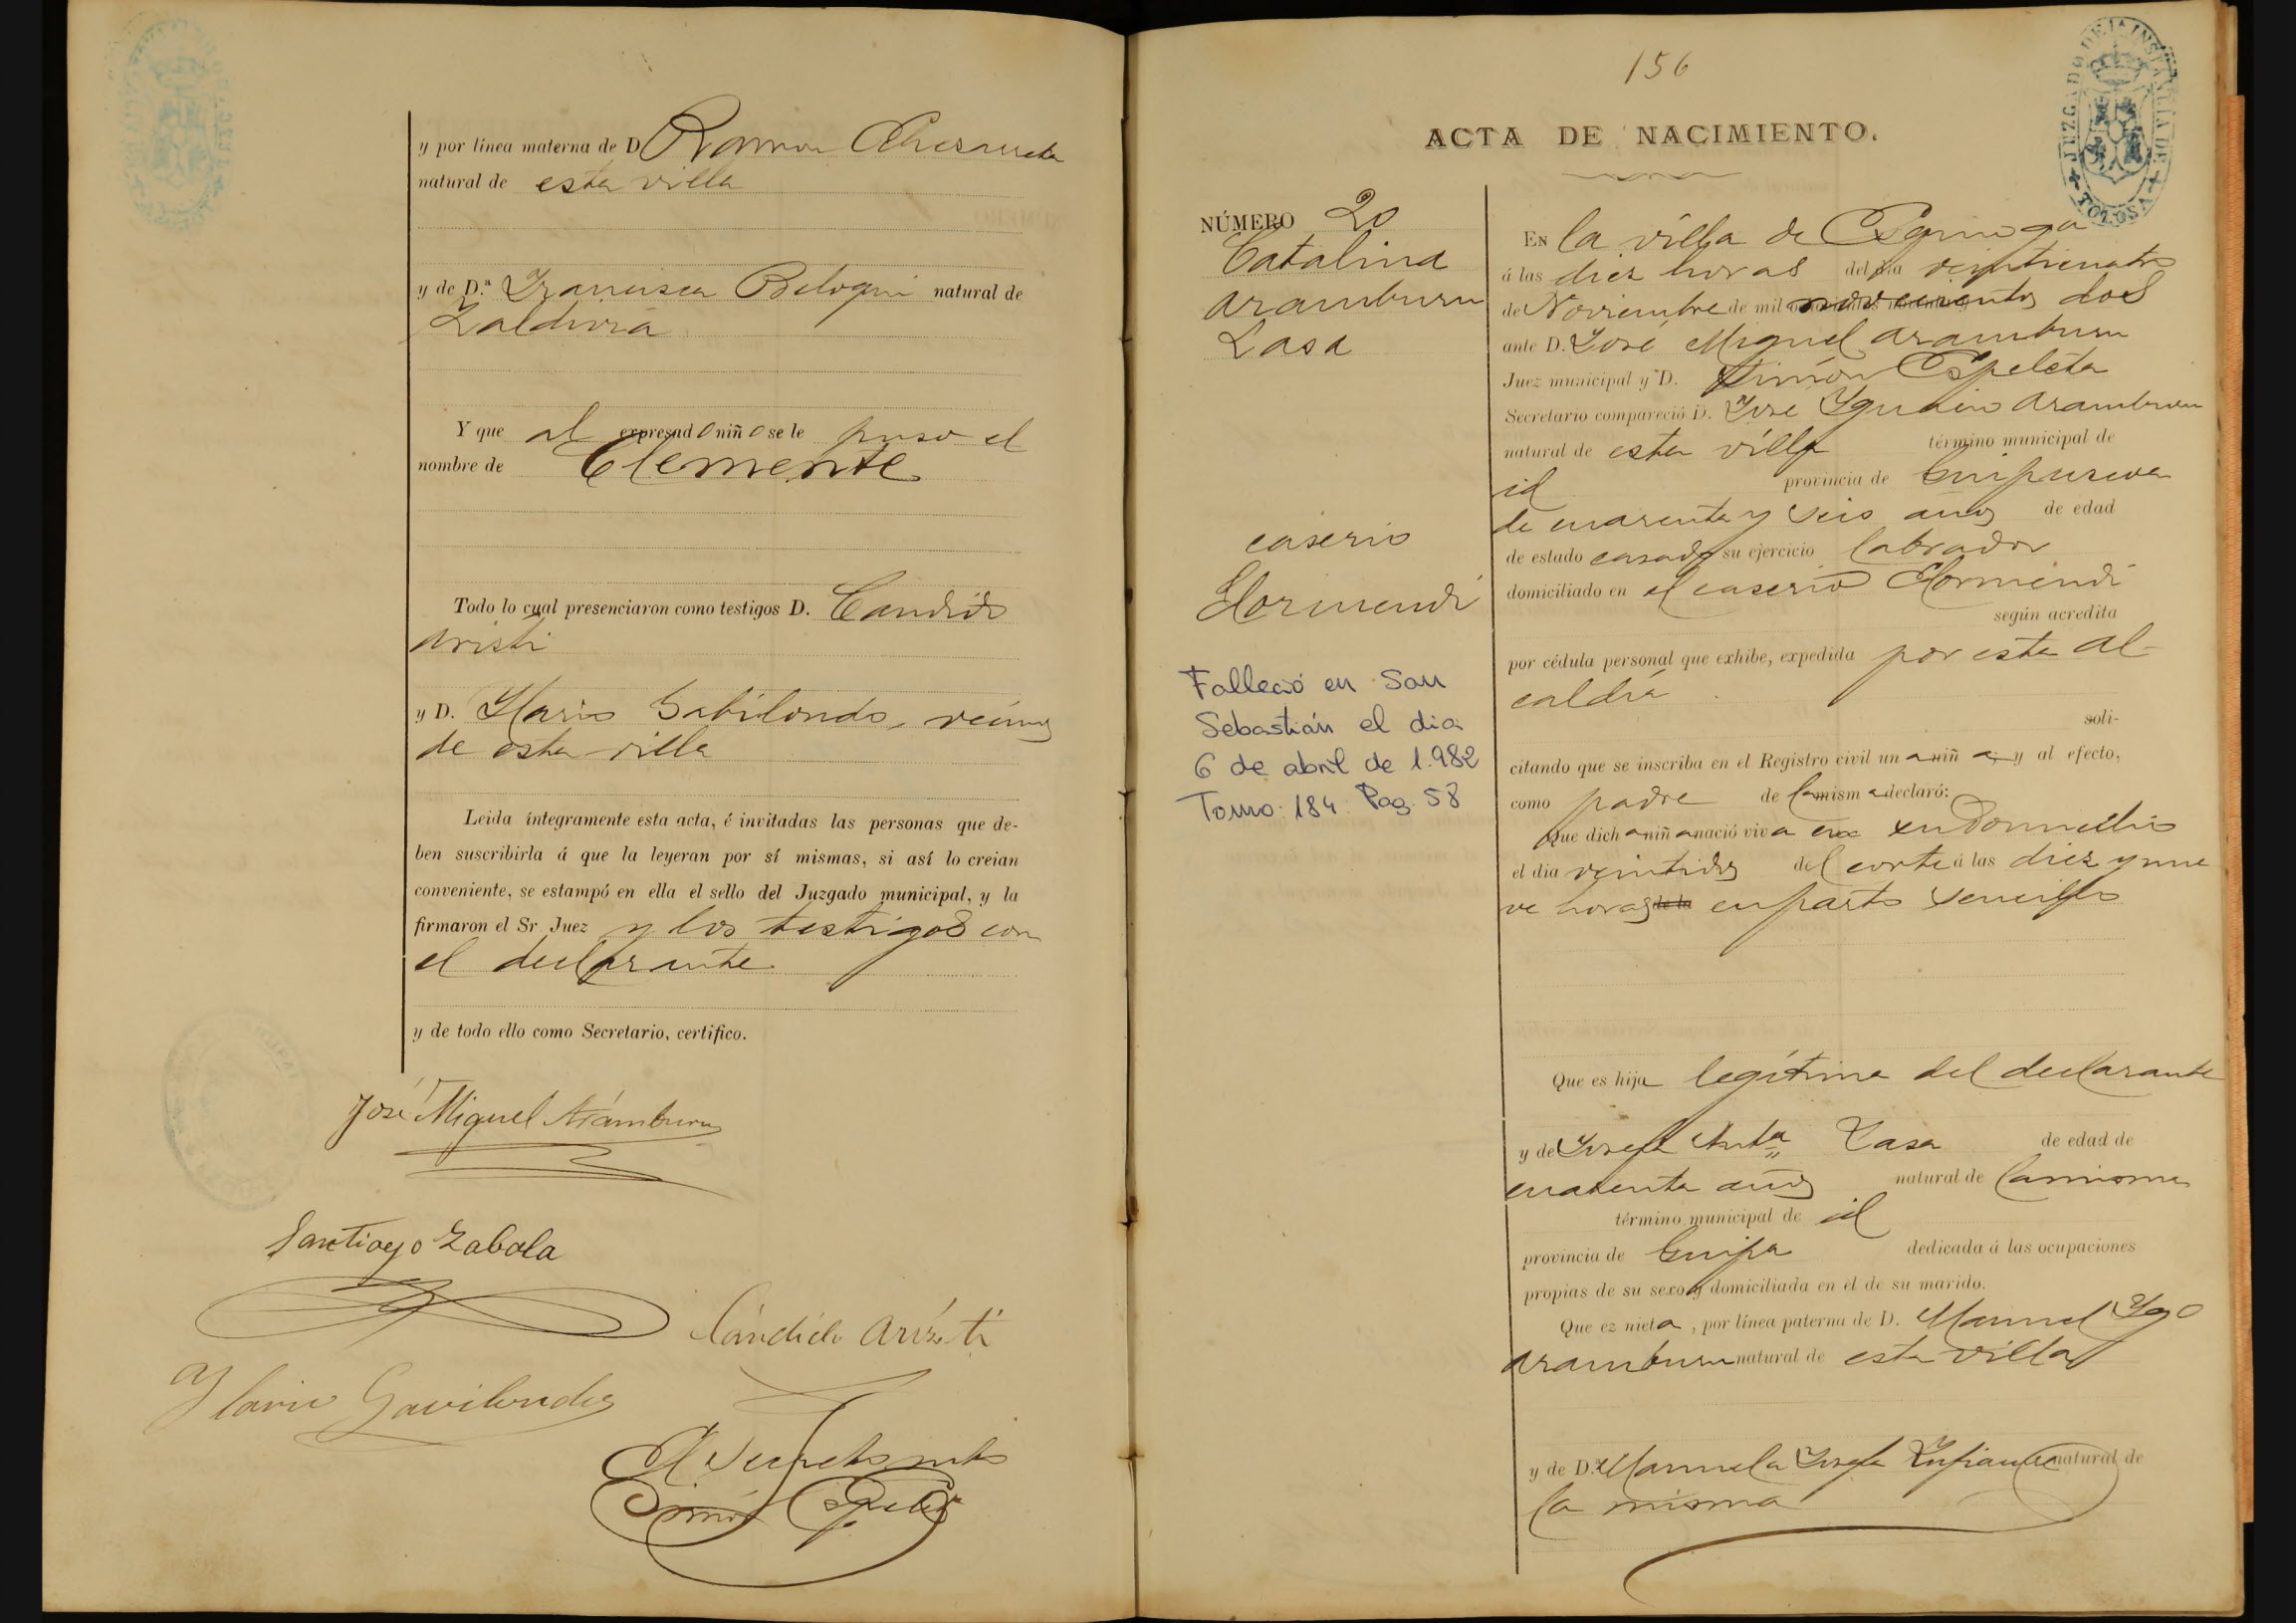 y por línea materna de D Ramon
natural de esta villa
y de D.ª Francisca Beloqui natural de
Zaldivia
Y que al expresado niño se le puso el
nombre de Clemente
Todo lo cual presenciaron como testigos D. Candido
Aristi
y D. Ylario Gabilondo, vecinos
de esta villa
Leida íntegramente esta acta, é invitadas las personas que de-
ben suscribirla á que la leyeran por sí mismas, si así lo creian
conveniente, se estampó en ella el sello del Juzgado municipal, y la
firmaron el Sr Juez y los testigos con
el declarante
y de todo ello como Secretario, certifico.
José Miguel Aramburu
Santiago Zabala
Cándido Aristi
Ylario Gavilondo
El Secretario
Simón Espeleta
156
JUZGADO DE 1ª INSTANCIA DE TOLOSA
ACTA DE NACIMIENTO.
NÚMERO 20
Catalina
Aramburu
Lasa
caserio
Elormendi
Falleció en San
Sebastián el dia
6 de abril de 1.982
Tomo: 184: Pag. 58
En la villa de
á las diez horas del dia veinticuatro
de Noviembre de mil novecientos dos
ante D. José Miguel Aramburu
Juez municipal y D. Simón Espeleta
Secretario compareció D. Jose Ygnacio Aramburu
natural de esta villa término municipal de
id provincia de Guipuzcoa
de cuarenta y seis años de edad
de estado casado su ejercicio labrador
domiciliado en el caserio Elormendi
según acredita
por cédula personal que exhibe, expedida por esta Al-
caldía
soli-
citando que se inscriba en el Registro civil una niña, y al efecto,
como padre de la misma declaró:
Que dicha niña nació viva en su domicilio
el dia veintidos del corte á las diez y nue
ve horas de la en parto sencillo
Que es hija legítima del declarante
y de Josefa Antª Lasa de edad de
cuarenta años natural de la misma
término municipal de id
provincia de Guipa dedicada á las ocupaciones
propias de su sexo y domiciliada en el de su marido.
Que es nieta, por línea paterna de D. Manuel Ygo
Aramburu natural de esta villa
y de D.ª Manuela Josefa natural de
la misma